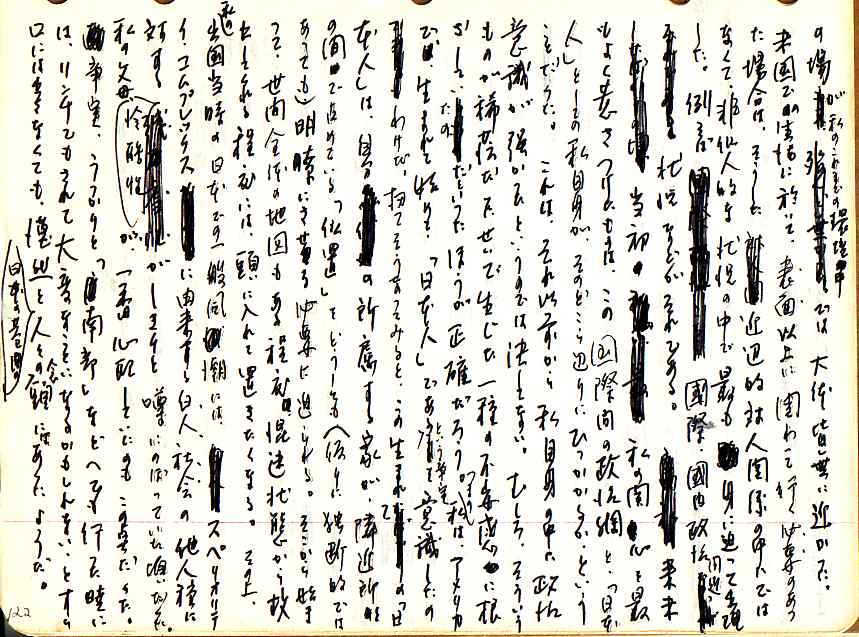 の場が私のこれまでの環境中では大体皆無に近かった。
米国での生活に於いて、表面以上に関わって行く必要のあっ
た場合は、そうした近辺的対人関係の中では
なくて、非個人的な状況の中で最も身に迫って出現
した。例えば 国際、国内政治問題
状況などがそれである。
当初の 私の関心を最
もよく惹きつけたものは、この国際間の政治網と「日本
人」としての私自身が、そのどこら辺りにひっかかるか、という
ことだった。これは、それ以前から私自身の中に政治
意識が強かったというのでは決してない。むしろ、そういう
ものが稀薄だったせいで生じた一種の不安感に根
ざしていたといったほうが正確だろう。私は「アメリカ
で」生まれて始めて、「日本人」であるという事実を意識したの
わけだ。扨てそうなってみると、この生まれての「日
本人」は、自分の所属する家が、隣近所
の間で占めている「位置」をどうしても(仮りに独断的では
あっても)明瞭にさせる必要に迫られる。そこから始ま
って、世間全体の地図もある程度混迷状態から救
出される程度には、頭に入れて置きたくなる。その上、
私の出国当時の日本での一般風潮には スペリオリテ
イ・コムプレックスに由来する白人社会の他人種に
対する がしきりと噂にのぼっていた頃だった。
私の父母が、一番心配していたのもこの点だった。
事実、うっかりと「南部」などへでも行った暁に
は、リンチでもされて大変なことになるかもしれないとすら
口には出さなくても、漠然と人々の念頭にはあったようだ。
122